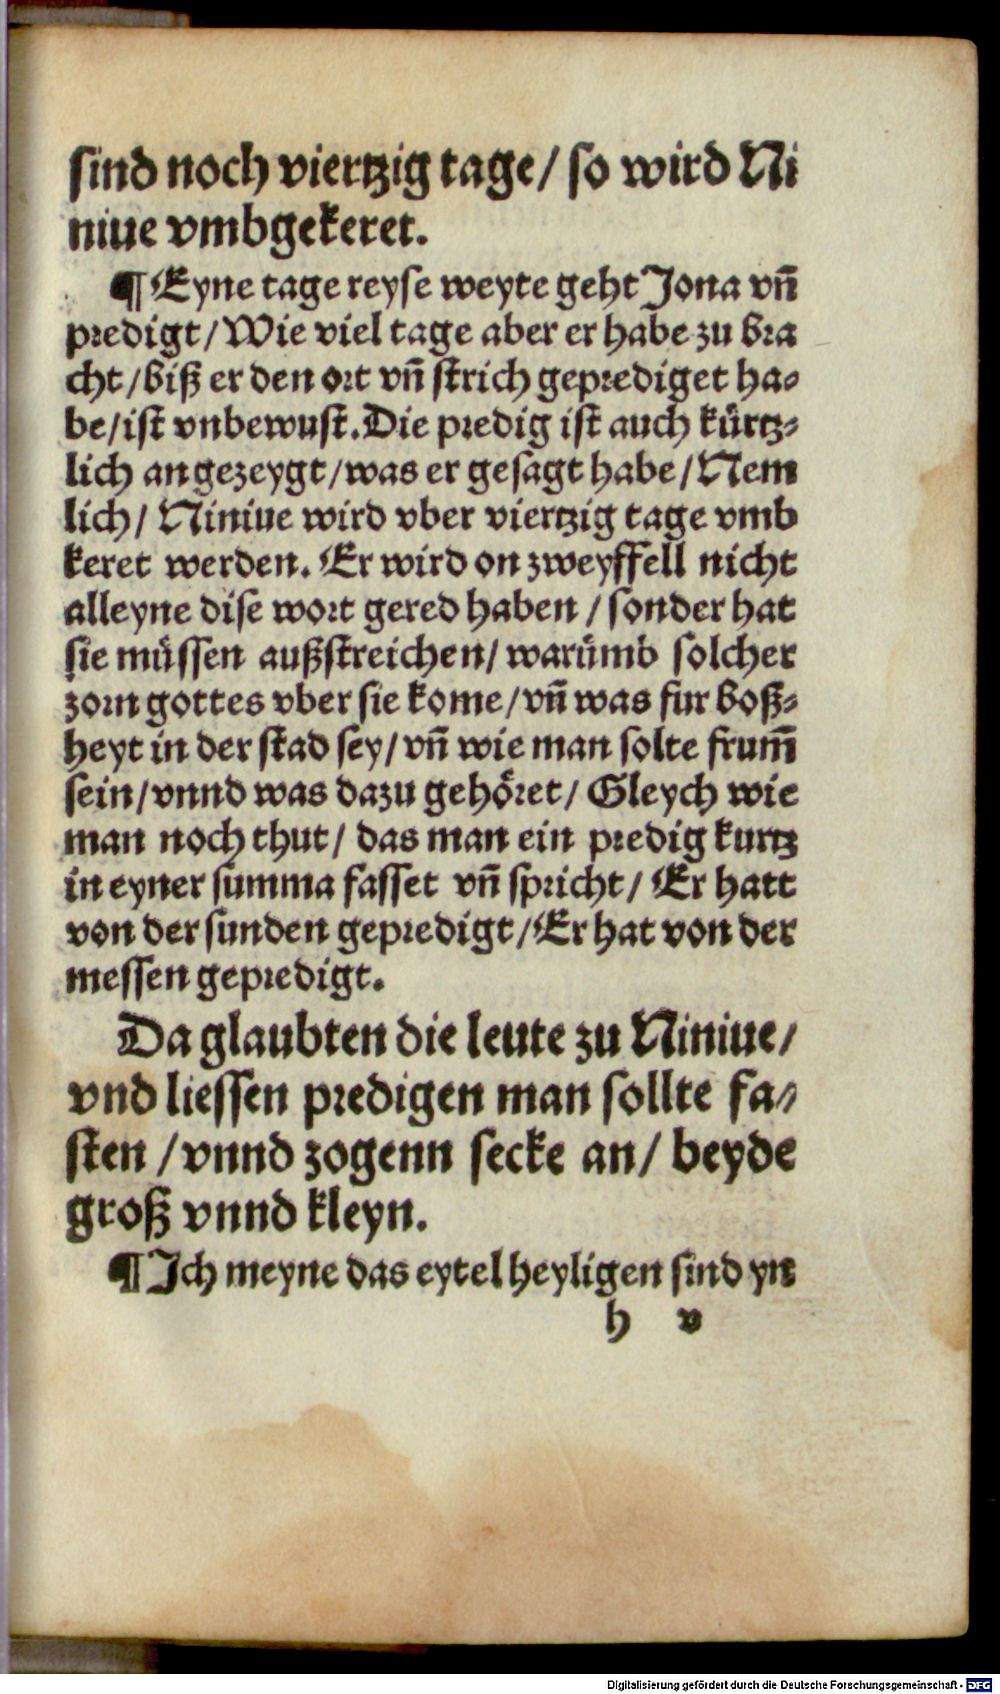 sind noch viertzig tage/ so wird Ni
niue vmbgekeret.
¶ Eyne tage reyse weyte geht Jona vñ
predigt/ Wie viel tage aber er habe zu bra
cht/ biß er den ort vñ strich geprediget ha⸗
be/ ist vnbewust. Die predig ist auch kürtz⸗
lich angezeygt/ was er gesagt habe/ Nem
lich/ Niniue wird vber viertzig tage vmb
keret werden. Er wird on zweyffell nicht
alleyne dise wort gered haben/ sonder hat
sie müssen außstreichen/ warümb solcher
zorn gottes vber sie kome/ vñ was fur boß⸗
heyt in der stad sey/ vñ wie man solte frum̃
sein/ vnnd was dazu gehöret/ Gleych wie
man noch thut/ das man ein predig kurtz
in eyner summa fasset vñ spricht/ Er hatt
von der sunden gepredigt/ Er hat von der
messen gepredigt.
Da glaubten die leute zu Niniue/
vnd liessen predigen man sollte fa⸗
sten/ vnnd zogenn secke an/ beyde
groß vnnd kleyn.
¶ Ich meyne das eytel heyligen sind yn
h v
Digitalisierung gefördert durch die Deutsche Forschungsgemeinschaft - DFG